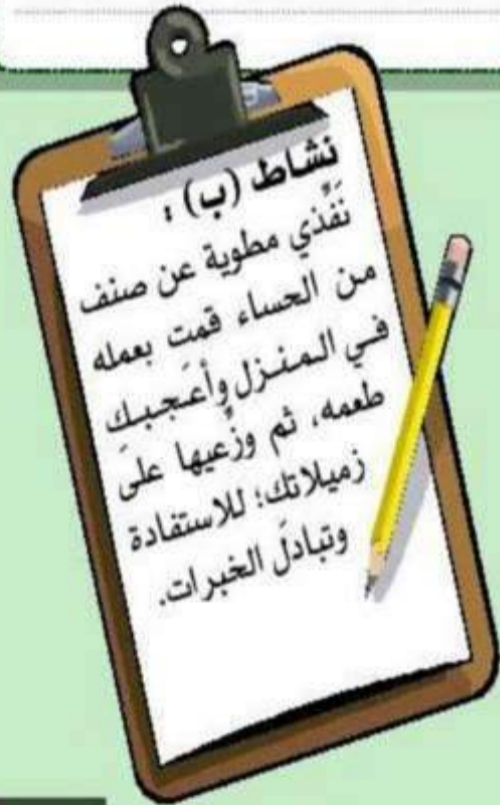 نشاط (ب) :
نَفِّذي مطوية عن صنف
من الحساء قمت بعمله
في المنزل وأعجبكِ
طعمه، ثم وزِّعيها على
زميلاتك؛ للاستفادة
وتبادل الخبرات.